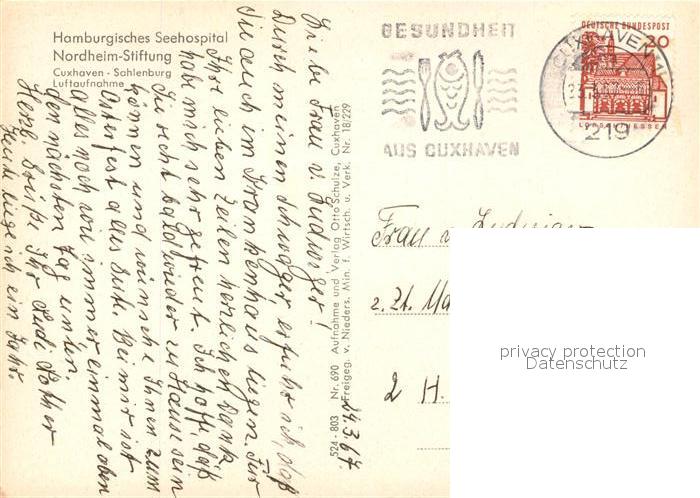 Hamburgisches Seehospital
Nordheim-Stiftung
Cuxhaven - Sahlenburg
Luftaufnahme
GESUNDHEIT
AUS CUXHAVEN
DEUTSCHE BUNDESPOST
20
CUXHAVEN
219
LORSCH/HESSEN
Liebe Frau v. Ludwiger!
Durch meinen Schwager erfuhr ich, daß
Sie auch im Krankenhaus liegen. Für
Ihre lieben Zeilen herzlichen Dank
habe mich sehr gefreut. Ich hoffe, daß
Sie recht bald wieder zu Hause sein
können und wünsche Ihnen zum
Osterfest alles Gute. Bei mir ist
alles noch wie immer einmal oben
den nächsten Tag unten.
Herzl. Grüße Ihr Rother
Heute liege ich ein Jahr.
524 - 803 Nr. 690 Aufnahme und Verlag Otto Schulze, Cuxhaven
Freigeg. v. Nieders. Min. f. Wirtsch. u. Verk. Nr. 18/229
24.3.67
Frau v. Ludwiger
z. Zt.
2 H.
privacy protection
Datenschutz